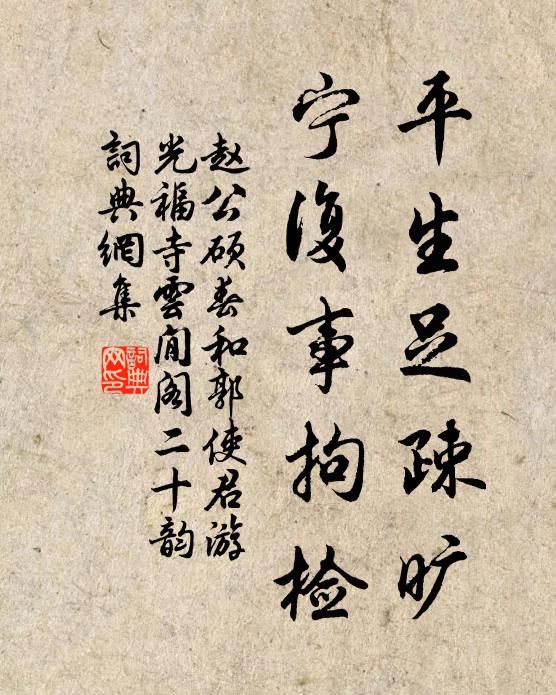 平生足疎旷
宁復事拘检
赵公硕奉和郭使君游
光福寺雲间阁二十韵
詞典網集
詞典网印